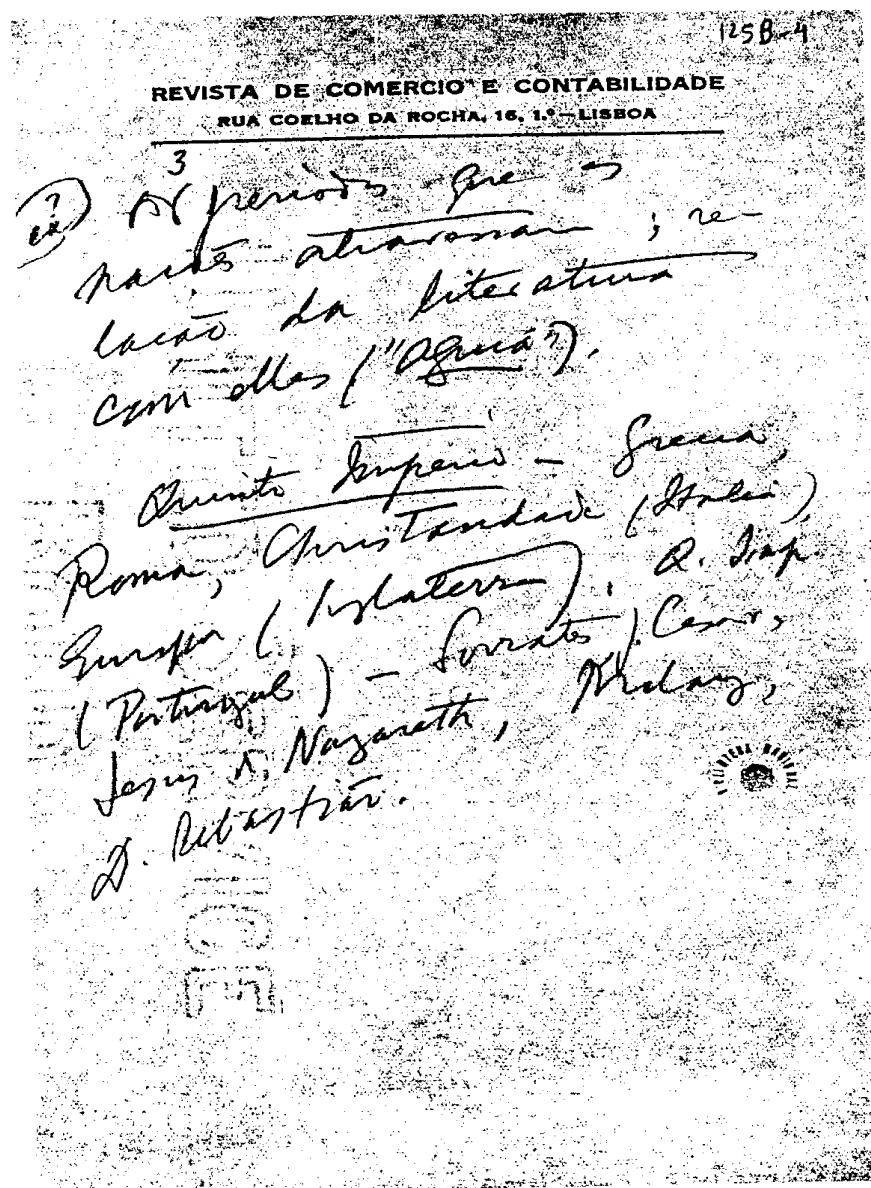 125B-4
REVISTA DE COMERCIO E CONTABILIDADE
RUA COELHO DA ROCHA, 16, 1.º — LISBOA
3
Os periodos que as
nações atravessam; re-
lação da literatura
com elles ("Aguia").
Quinto Imperio — Grecia,
Roma, Christandade (Italia),
Europa (Inglaterra), Q. Imp.
(Portugal) — Socrates, Cesar,
Jesus N. Nazareth,
D. Sebastião.
BIBLIOTECA NACIONAL